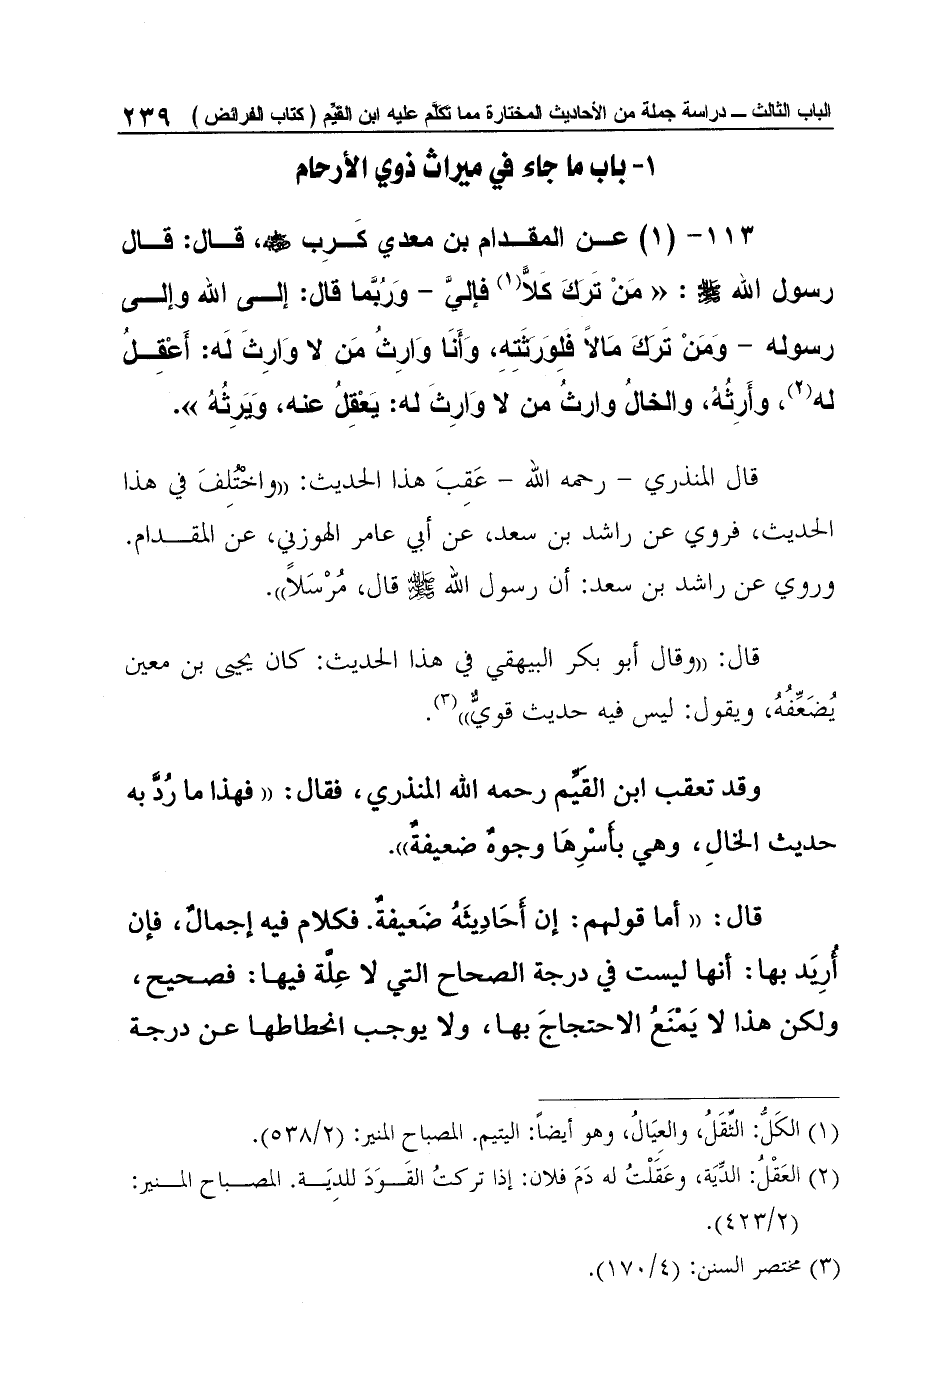 الباب الثالث ــ دراسة جملة من الأحاديث المختارة مما تكلَّم عليه ابن القيِّم ( كتاب الفرائض ) ٢٣٩
١- باب ما جاء في ميراث ذوي الأرحام
١١٣- (١) عن المقدام بن معدي كَرِب ﷺ، قال: قال
رسول الله ﷺ : « مَنْ تَرَكَ كَلاًّ(١) فإليَّ – ورُبَّما قال: إلى الله وإلى
رسوله – ومَنْ تَرَكَ مالاً فَلِورَثَتِهِ، وأَنَا وارِثُ مَن لا وارِثَ لَه: أَعْقِلُ
له(٢)، وأَرِثُهُ، والخالُ وارثُ من لا وَارِثَ له: يَعْقِلُ عنه، ويَرِثُهُ ».
قال المنذري – رحمه الله – عَقِبَ هذا الحديث: ((واخْتُلِفَ في هذا
الحديث، فروي عن راشد بن سعد، عن أبي عامر الهوزني، عن المقدام.
وروي عن راشد بن سعد: أن رسول الله ﷺ قال، مُرْسَلاً)).
قال: ((وقال أبو بكر البيهقي في هذا الحديث: كان يحيى بن معين
يُضَعِّفُهُ، ويقول: ليس فيه حديث قويٌّ))(٣).
وقد تعقب ابن القَيِّم رحمه الله المنذري، فقال: « فهذا ما رُدَّ به
حديث الخالِ، وهي بأَسْرِهَا وجوهٌ ضعيفةٌ)).
قال: « أما قولهم: إن أَحَادِيثَهُ ضَعيفةٌ. فكلام فيه إجمالٌ، فإن
أُرِيَد بها: أنها ليست في درجة الصحاح التي لا عِلَّة فيها: فصحيح،
ولكن هذا لا يَمْنَعُ الاحتجاجَ بها، ولا يوجب انحطاطها عن درجة
(١) الكَلُّ: الثِّقَلُ، والعِيَالُ، وهو أيضاً: اليتيم. المصباح المنير: (٥٣٨/٢).
(٢) العَقْلُ: الدِّيَة، وعَقَلْتُ له دَمَ فلان: إذا تركتُ القَوَدَ للدِيَة. المصباح المنير:
(٤٢٣/٢).
(٣) مختصر السنن: (١٧٠/٤).